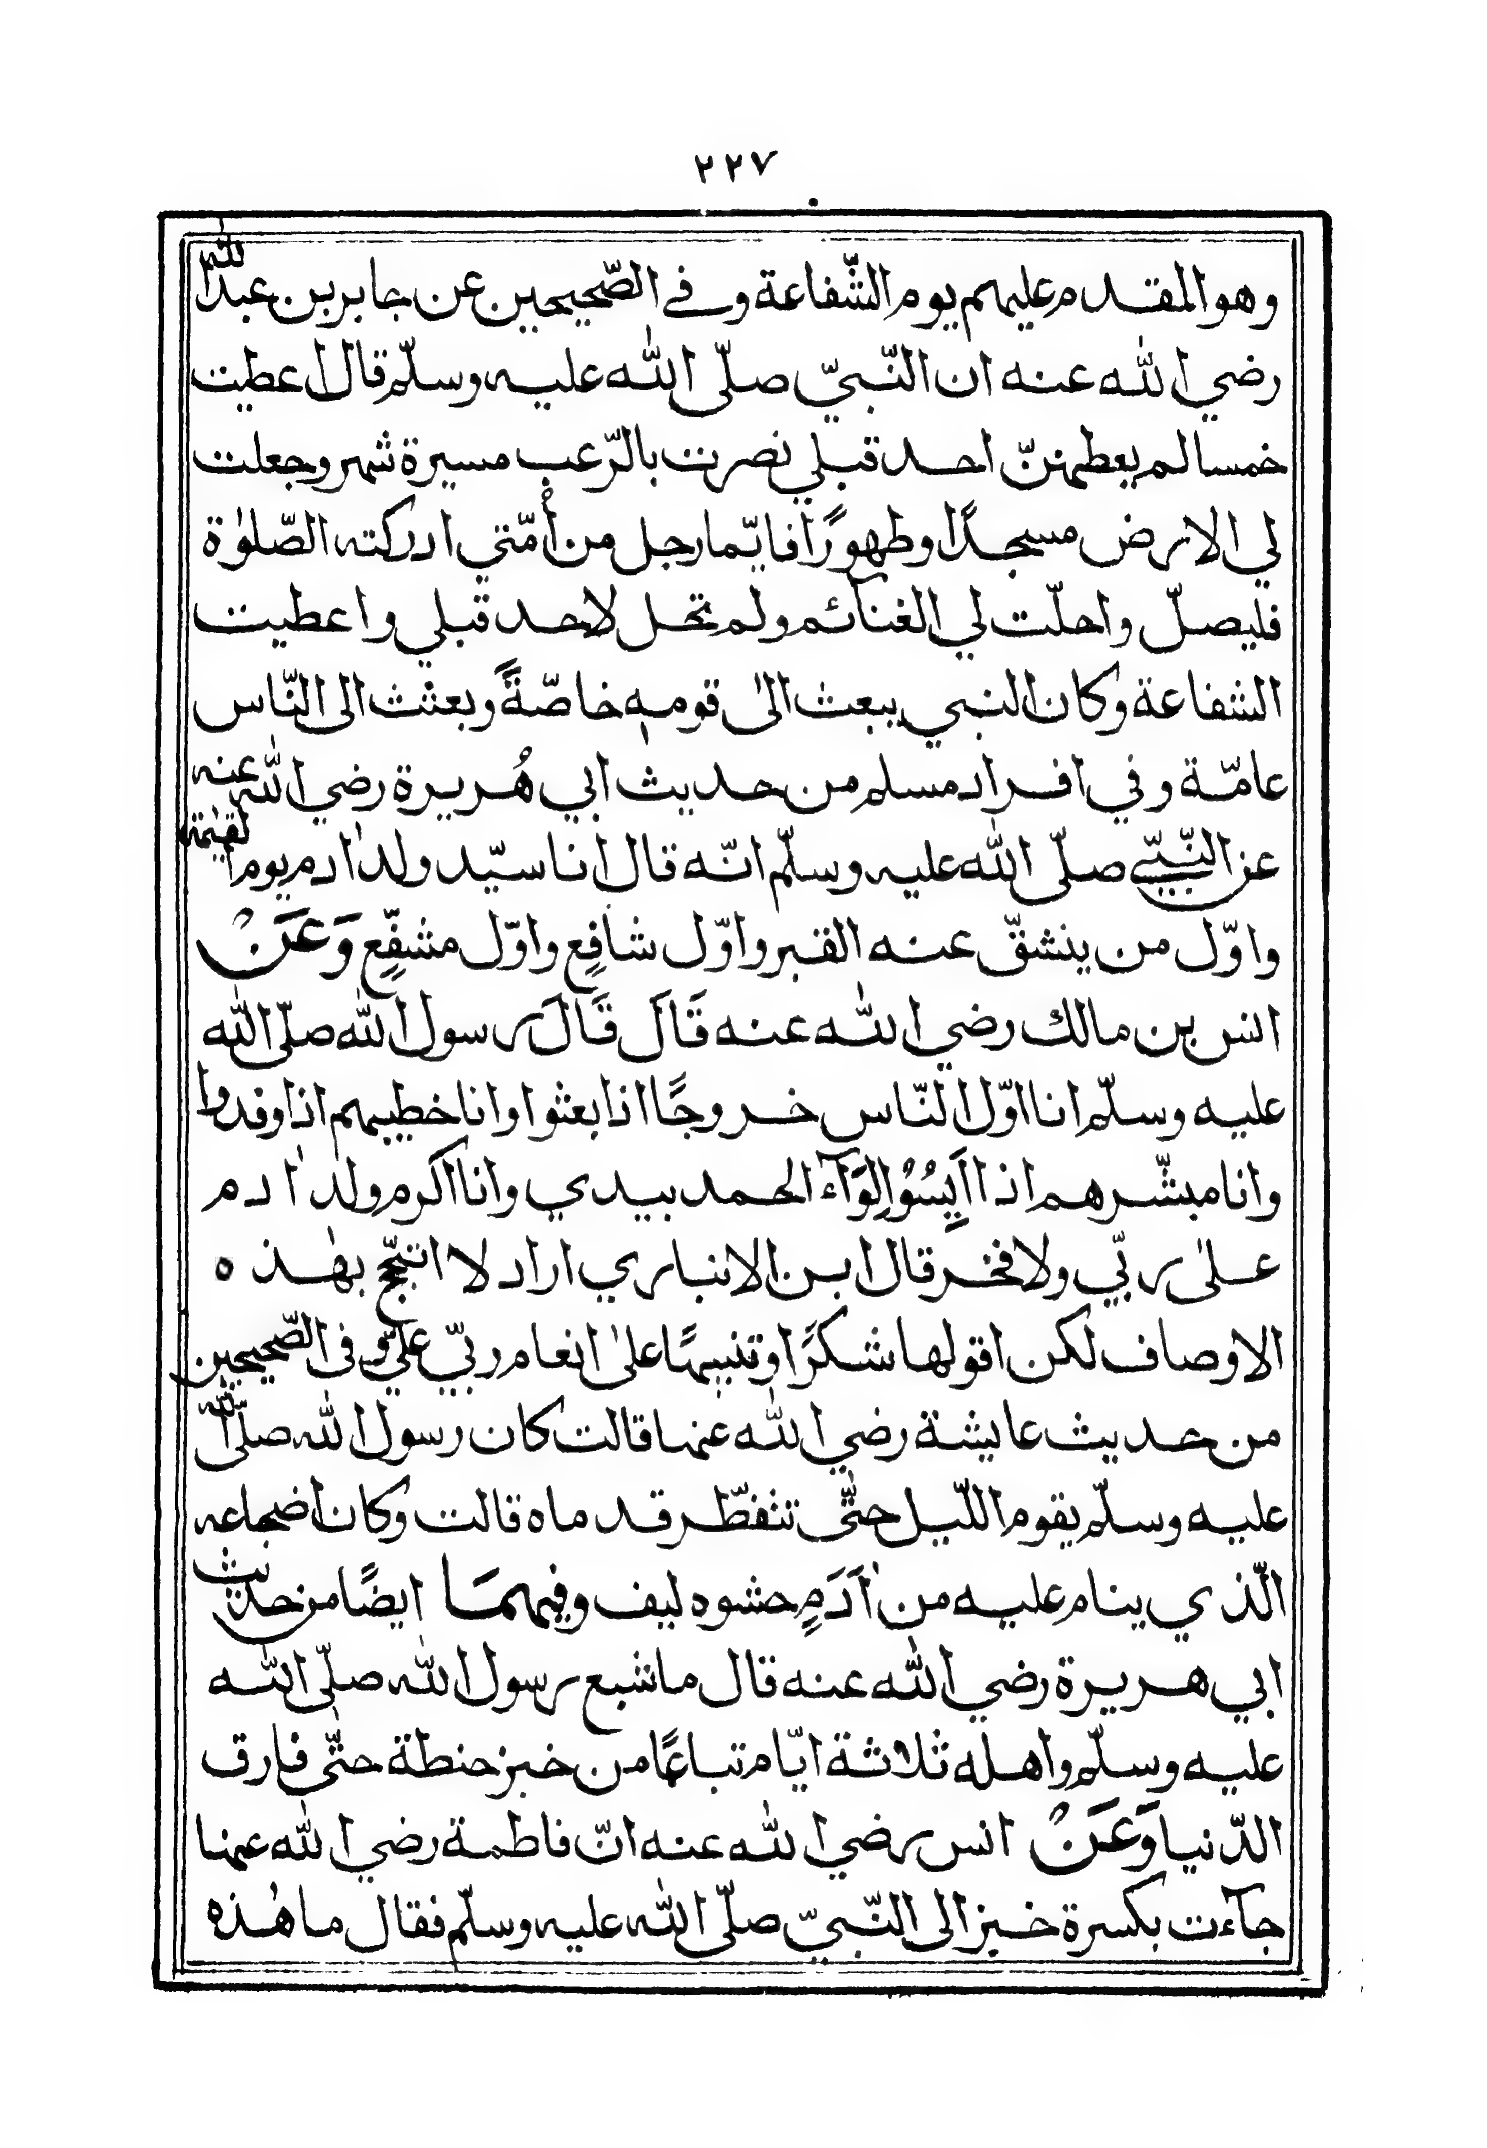 ٢٢٧
وهو المقدم عليهم يوم الشّفاعة وفي الصّحيحين عن جابر بن عبد الله
رضي الله عنه ان النّبيّ صلّى الله عليه وسلّم قال اعطيت
خمسا لم يعطهنّ احد قبلي نصرت بالرّعب مسيرة شهر وجعلت
لي الارض مسجدًا وطهورًا فايّما رجل من أُمّتي ادركته الصّلوٰة
فليصلّ واحلّت لي الغنائم ولم تحل لاحد قبلي واعطيت
الشفاعة وكان النبي يبعث الىٰ قومه خاصّةً وبعثت الى النّاس
عامّة وفي افراد مسلم من حديث ابي هُريرة رضي الله عنه
عن النّبيّ صلّى الله عليه وسلّم انّه قال انا سيّد ولد اٰدم يوم القيٰمة
واوّل من ينشقّ عنه القبر واوّل شافِع واوّل مشفّع وَعَنْ
انس بن مالك رضي الله عنه قَالَ قَالَ رسول الله صلّى الله
عليه وسلّم انا اوّل النّاس خروجًا اذا بعثوا وانا خطيبهم اذا وفدوا
وانا مبشّرهم اذا اَيِسُوْا لِوَآءُ الحمد بيدي وانا اكرم ولد اٰدم
علىٰ ربّي ولا فخر قال ابن الانباري اراد لا اتبجّح بهٰذه
الاوصاف لكن اقولها شكرًا وتنبيهًا علىٰ انعام ربّي عليّ وفى الصّحيحين
من حديث عايشة رضي الله عنها قالت كان رسول الله صلّى الله
عليه وسلّم يقوم اللّيل حتّٰى تتفطّر قدماه قالت وكان اضجاعه
الّذي ينام عليه من اَدَمٍ حشوه ليف وفيهمَا ايضًا من حديث
ابي هريرة رضي الله عنه قال ما شبع رسول الله صلّى الله
عليه وسلّم واهله ثلاثة ايّام تباعًا من خبز حنطة حتّٰى فارق
الدّنيا وَعَنْ انس رضي الله عنه انّ فاطمة رضي الله عنها
جآءت بكسرة خبز الى النّبيّ صلّى الله عليه وسلّم فقال ما هٰذه